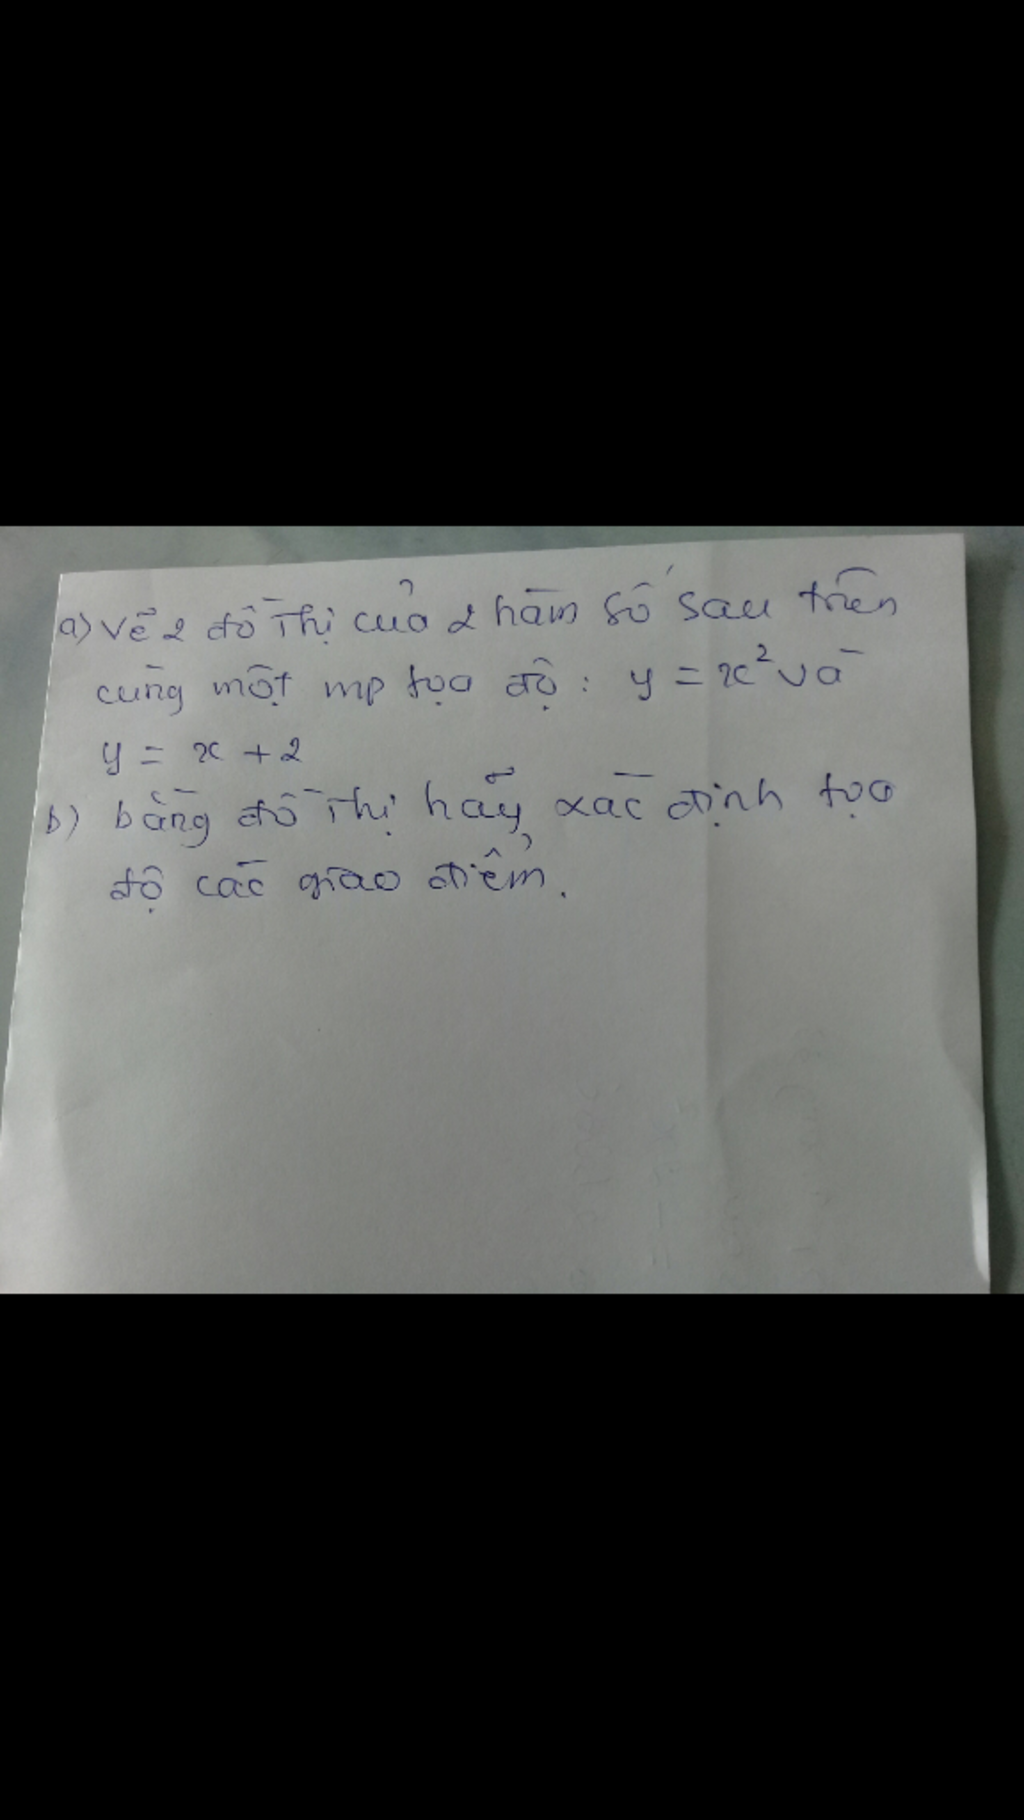 a) Vẽ 2 đồ thị của 2 hàm số sau trên
cùng một mp tọa độ : y = x² và
y = x + 2
b) bằng đồ thị hãy xác định tọa
độ các giao điểm.